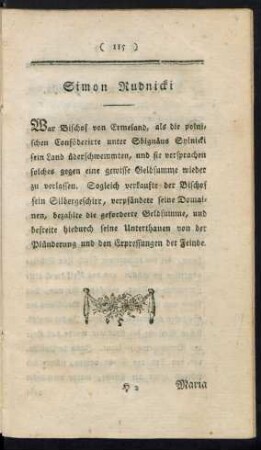 ( 115 )
Simon Rudnicki
War Bischof von Ermeland, als die polni-
schen Conföderirte unter Sbignäus Sylnicki
sein Land überschwemmten, und sie versprachen
solches gegen eine gewisse Geldsumme wieder
zu verlassen. Sogleich verkaufte der Bischof
sein Silbergeschirr, verpfändete seine Domai-
nen, bezahlte die geforderte Geldsumme, und
befreite hiedurch seine Unterthanen von der
Plünderung und den Expressungen der Feinde.
H 2 Maria